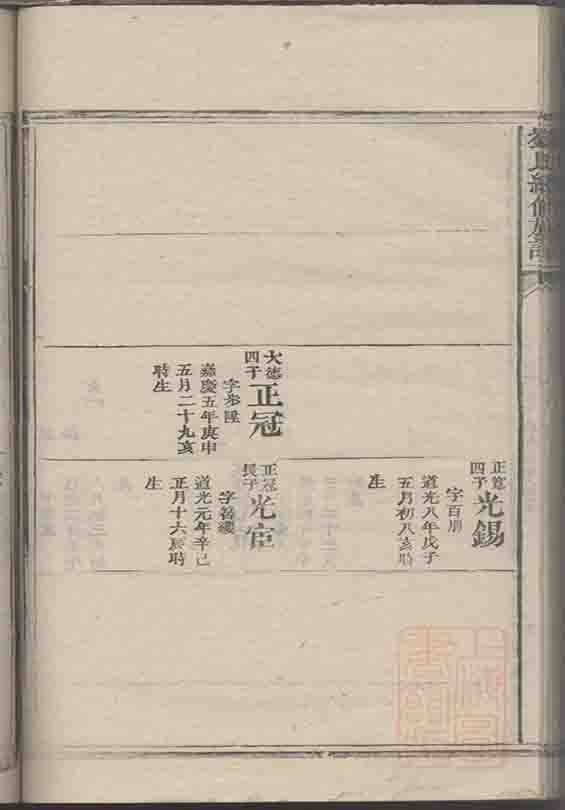 劉氏續修族譜
正寬
四子
光錫
字百朋
道光八年戊子
五月初八亥時
生
大德
四子
正冠
字步陞
嘉慶五年庚申
五月二十九亥
時生
正冠
長子
光宦
道光元年辛巳
正月十六辰時
生
上海圖
書館藏